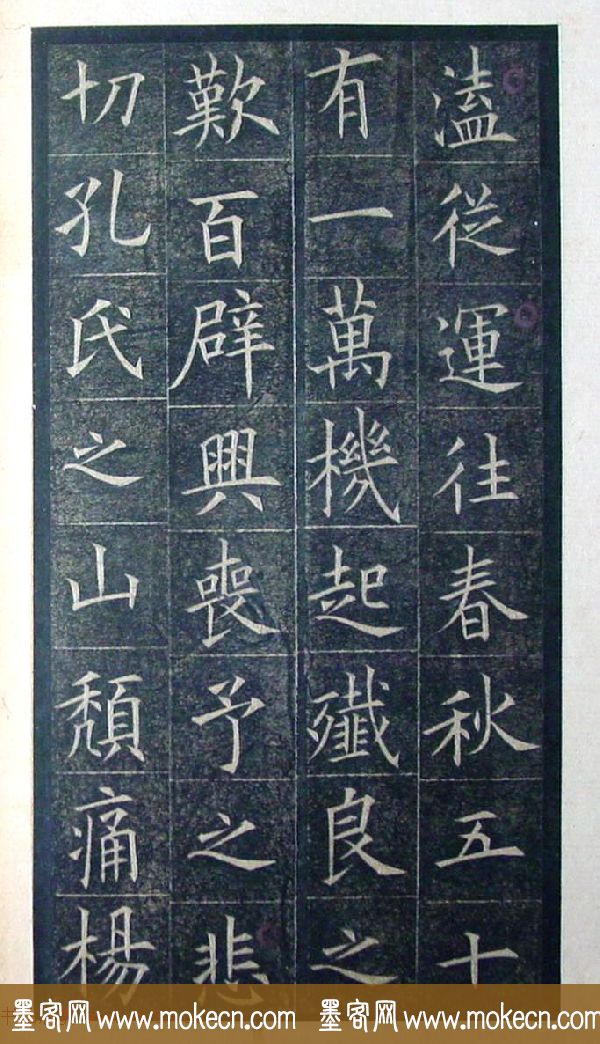 溘從運往春秋五十
有一萬機起殲良之
歎百辟興喪予之悲
切孔氏之山頹痛楊
墨客网 www.mokecn.com 墨客网 www.mokecn.com